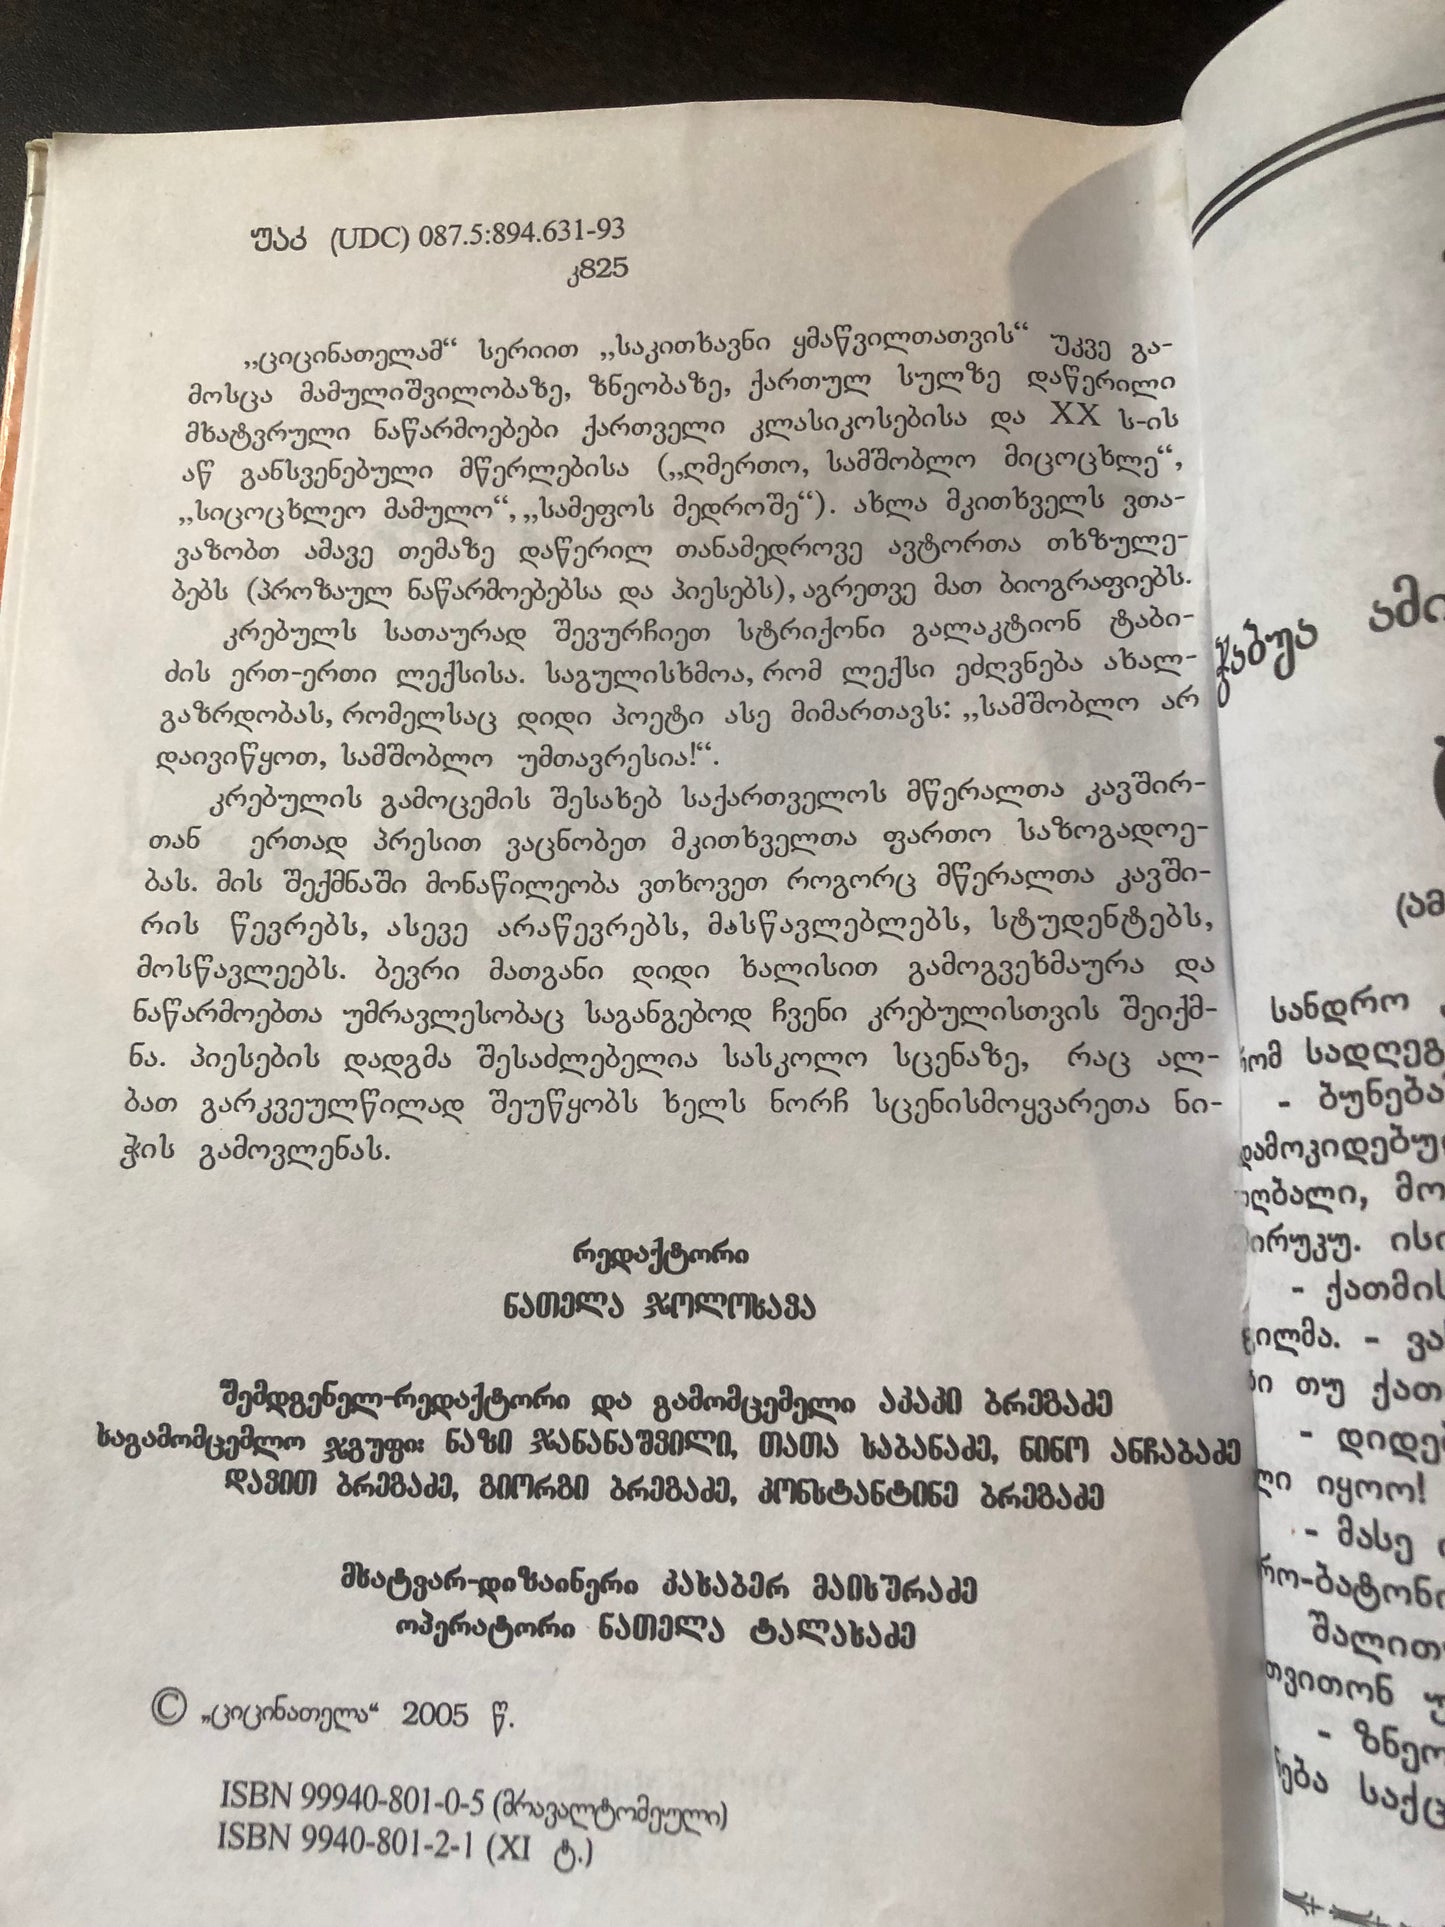 უაკ (UDC) 087.5:894.631-93
კ825
„ციცინათელამ“ სერიით „საკითხავნი ყმაწვილთათვის“ უკვე გა-
მოსცა მამულიშვილობაზე, ზნეობაზე, ქართულ სულზე დაწერილი
მხატვრული ნაწარმოებები ქართველი კლასიკოსებისა და XX ს-ის
აწ განსვენებული მწერლებისა („ღმერთო, სამშობლო მიცოცხლე“,
„სიცოცხლეო მამულო“, „სამეფოს მედროშე“). ახლა მკითხველს ვთა-
ვაზობთ ამავე თემაზე დაწერილ თანამედროვე ავტორთა თხზულე-
ბებს (პროზაულ ნაწარმოებებსა და პიესებს), აგრეთვე მათ ბიოგრაფიებს.
კრებულს სათაურად შევურჩიეთ სტრიქონი გალაკტიონ ტაბი-
ძის ერთ-ერთი ლექსისა. საგულისხმოა, რომ ლექსი ეძღვნება ახალ-
გაზრდობას, რომელსაც დიდი პოეტი ასე მიმართავს: „სამშობლო არ
დაივიწყოთ, სამშობლო უმთავრესია!“.
კრებულის გამოცემის შესახებ საქართველოს მწერალთა კავშირ-
თან ერთად პრესით ვაცნობეთ მკითხველთა ფართო საზოგადოე-
ბას. მის შექმნაში მონაწილეობა ვთხოვეთ როგორც მწერალთა კავში-
რის წევრებს, ასევე არაწევრებს, მასწავლებლებს, სტუდენტებს,
მოსწავლეებს. ბევრი მათგანი დიდი ხალისით გამოგვეხმაურა და
ნაწარმოებთა უმრავლესობაც საგანგებოდ ჩვენი კრებულისთვის შეიქმ-
ნა. პიესების დადგმა შესაძლებელია სასკოლო სცენაზე, რაც ალ-
ბათ გარკვეულწილად შეუწყობს ხელს ნორჩ სცენისმოყვარეთა ნი-
ჭის გამოვლენას.
რედაქტორი
ნათელა ჯოლოხავა
შემდგენელ-რედაქტორი და გამომცემელი აკაკი ბრეგაძე
საგამომცემლო ჯგუფი: ნაზი ჯანანაშვილი, თათა საბანაძე, ნინო ანჩაბაძე
დავით ბრეგაძე, გიორგი ბრეგაძე, კონსტანტინე ბრეგაძე
მხატვარ-დიზაინერი კახაბერ მაისურაძე
ოპერატორი ნათელა ტალახაძე
© „ციცინათელა“ 2005 წ.
ISBN 99940-801-0-5 (მრავალტომეული)
ISBN 9940-801-2-1 (XI ტ.)
ჭაბუა ამი
(ამ
სანდრო
რომ სადღეგ
- ბუნება
დამოკიდებუ
ღბალი, მო
ირუკუ. ისი
- ქათმის
ილმა. - ვა
ი თუ ქათ
- დიდე
ლი იყოო!
- მასე
რო-ბატონ
შალით
თვითონ უ
- ზნეო
ება საქც